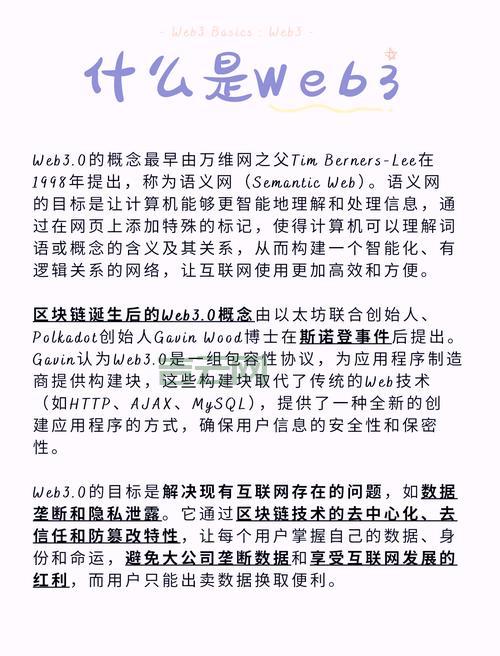 - Web3 Basics : Web3 -
什么是Web3
Web3.0的概念最早由万维网之父Tim Berners-Lee在
1998年提出，称为语义网（Semantic Web）。语义网
的目标是让计算机能够更智能地理解和处理信息，通
过在网页上添加特殊的标记，使得计算机可以理解词
语或概念的含义及其关系，从而构建一个智能化、有
逻辑关系的网络，让互联网使用更加高效和方便。
区块链诞生后的Web3.0概念由以太坊联合创始人、
Polkadot创始人Gavin Wood博士在斯诺登事件后提出。
Gavin认为Web3.0是一组包容性协议，为应用程序制造
商提供构建块，这些构建块取代了传统的Web技术
（如HTTP、AJAX、MySQL），提供了一种全新的创
建应用程序的方式，确保用户信息的安全性和保密
性。
Web3.0的目标是解决现有互联网存在的问题，如数据
垄断和隐私泄露。它通过区块链技术的去中心化、去
信任和防篡改特性，让每个用户掌握自己的数据、身
份和命运，避免大公司垄断数据和享受互联网发展的
红利，而用户只能出卖数据换取便利。